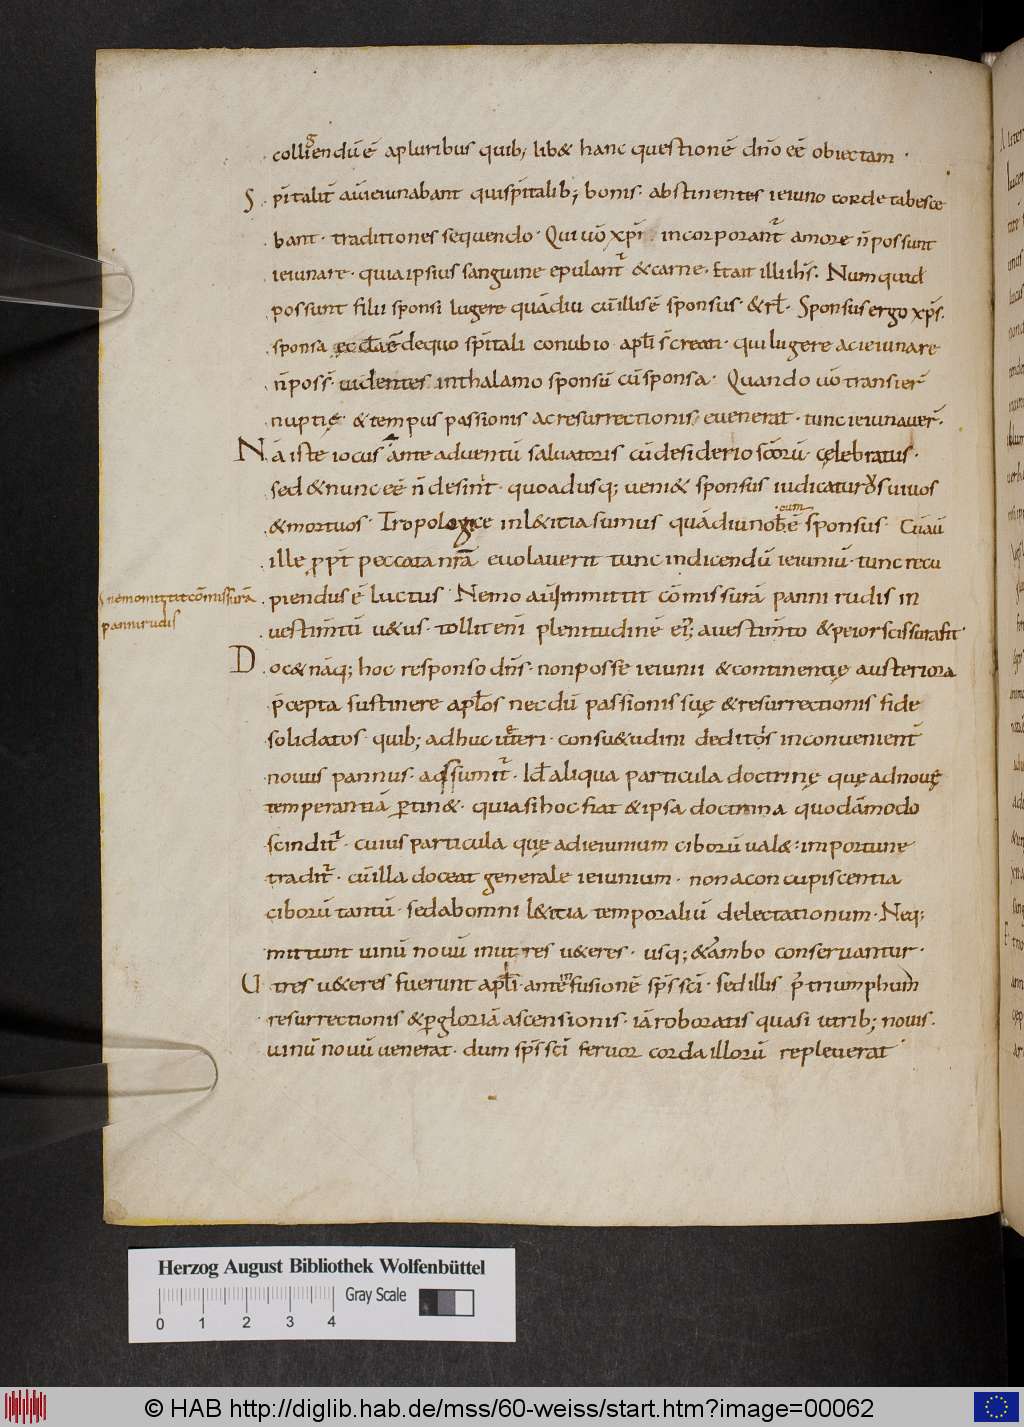 colligendū ē apluribus quib; lib& hanc questionē dn̄o eē obiectam ·
Sp̄italit̄ aūieiunabant quisp̄italib; bonis · abstinentes ieiuno corde tabesce
bant · traditiones sequendo · Qui uō xp̄i incorporant̄ amore n̄possunt
ieiunare · quia ipsius sanguine epulant̄ & carne · &ait illi ih̄s · Numquid
possunt filii sponsi lugere quādiu cū illis ē sponsus · & rl̄ · Sponsus ergo xp̄s ·
sponsa ęccl̄a ē dequo sp̄itali conubio apl̄i s̄ creati · qui lugere ac ieiunare
n̄ poss̄ · uidentes inthalamo sponsū cū sponsa · Quando uō transier̄
nuptię · & tempus passionis ac resurrectionis euenerat · tunc ieiunauer̄ ·
Nā iste iocus ante aduentū saluatoris cū desiderio sc̄orū cęlebratus ·
sed & nunc eē n̄ desinit · quoadusq; ueni& sponsus iudicaturus uiuos
& mortuos · Tropologice inl&itia sumus quādiu nob̄ cum ē sponsus · Cū aū
ille p̄pt̄ peccata nr̄ā euolauerit tunc indicendū ieiuniū · tunc recu
nemo mittit cōmissurā
panni rudis
piendus ē luctus · Nemo aū immittit cōmissurā panni rudis in
uestim̄tū u&us · tollit eni plenitudinē ei; auestim̄to & peior scissura fit
Doc& nāq; hoc responso dn̄s · non posse ieiunii & continentię austeriora
p̄cepta sustinere apl̄os necdū passionis suę & resurrectionis fide
solidatos · quib; adhuc ueteri · consu&udini deditos inconuenient̄
nouus pannus · adsumit̄ · Id ē aliqua particula doctrinę quę ad nouę
temperantiā p̄tin& · quia si hoc fiat & ipsa doctrina quodāmodo
scindit̄ · cuius particula quę adieiunium ciborū ual& importunę
tradit̄ · cū illa doceat generale ieiunium · non a concupiscentia
ciborū tantū · sed ab omni l&itia temporaliū delectationum · Neq;
mittunt uinū nouū in utres u&eres · usq; & ambo conseruantur ·
Utres u&eres fuerunt apl̄i · ante infusionē sp̄s sc̄i · sed illis p̄ triumphum
resurrectionis & p̄ gloriā ascensionis · iā roboratis quasi utrib; nouis ·
uinū nouū uenerat · dum sp̄s sc̄i feruor corda illorū repleuerat
Herzog August Bibliothek Wolfenbüttel
Gray Scale
0 1 2 3 4
© HAB http://diglib.hab.de/mss/60-weiss/start.htm?image=00062